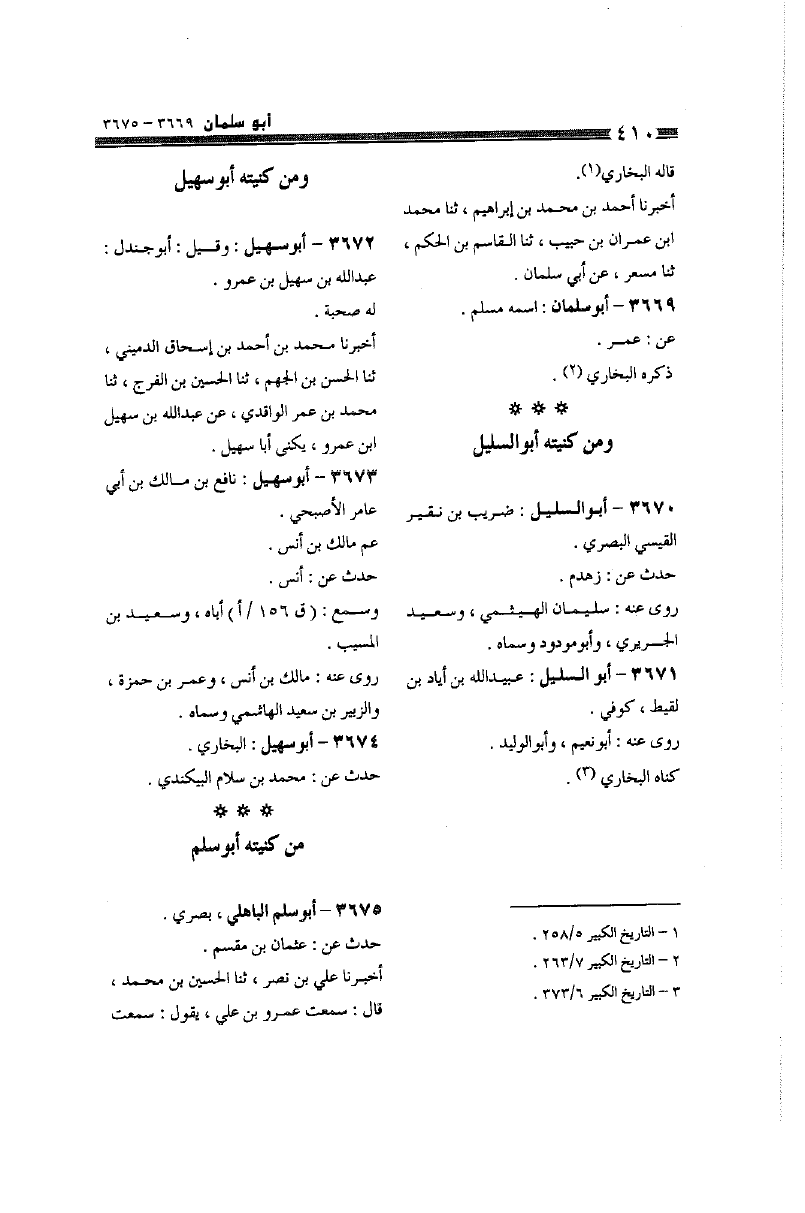 ٤١٠
أبو سلمان ٣٦٦٩ – ٣٦٧٥
قاله البخاري(١).
أخبرنا أحمد بن محمد بن إبراهيم ، ثنا محمد
ابن عمران بن حبيب ، ثنا القاسم بن الحكم ،
ثنا مسعر ، عن أبي سلمان .
٣٦٦٩ – أبوسلمان : اسمه مسلم .
عن : عمر .
ذكره البخاري (٢) .
* * *
ومن كنيته أبوالسليل
٣٦٧٠ – أبوالسليل : ضريب بن نقير
القيسي البصري .
حدث عن : زهدم .
روى عنه : سليمان الهيثمي ، وسعيد
الجريري ، وأبومودود وسماه .
٣٦٧١ – أبو السليل : عبيدالله بن أياد بن
لقيط ، كوفي .
روى عنه : أبونعيم ، وأبوالوليد .
كناه البخاري (٣) .
١ – التاريخ الكبير ٢٥٨/٥ .
٢ – التاريخ الكبير ٢٦٣/٧ .
٣ – التاريخ الكبير ٣٧٣/٦ .
ومن كنيته أبوسهيل
٣٦٧٢ – أبوسهيل : وقيل : أبوجندل :
عبدالله بن سهيل بن عمرو .
له صحبة .
أخبرنا محمد بن أحمد بن إسحاق الدميني ،
ثنا الحسن بن الجهم ، ثنا الحسين بن الفرج ، ثنا
محمد بن عمر الواقدي ، عن عبدالله بن سهيل
ابن عمرو ، يكنى أبا سهيل .
٣٦٧٣ – أبوسهيل : نافع بن مالك بن أبي
عامر الأصبحي .
عم مالك بن أنس .
حدث عن : أنس .
وسمع : (ق ١٥٦ / أ) أباه ، وسعيد بن
المسيب .
روى عنه : مالك بن أنس ، وعمر بن حمزة ،
والزبير بن سعيد الهاشمي وسماه .
٣٦٧٤ – أبوسهيل : البخاري .
حدث عن : محمد بن سلام البيكندي .
* * *
من كنيته أبوسلم
٣٦٧٥ – أبوسلم الباهلي ، بصري .
حدث عن : عثمان بن مقسم .
أخبرنا علي بن نصر ، ثنا الحسين بن محمد ،
قال : سمعت عمرو بن علي ، يقول : سمعت